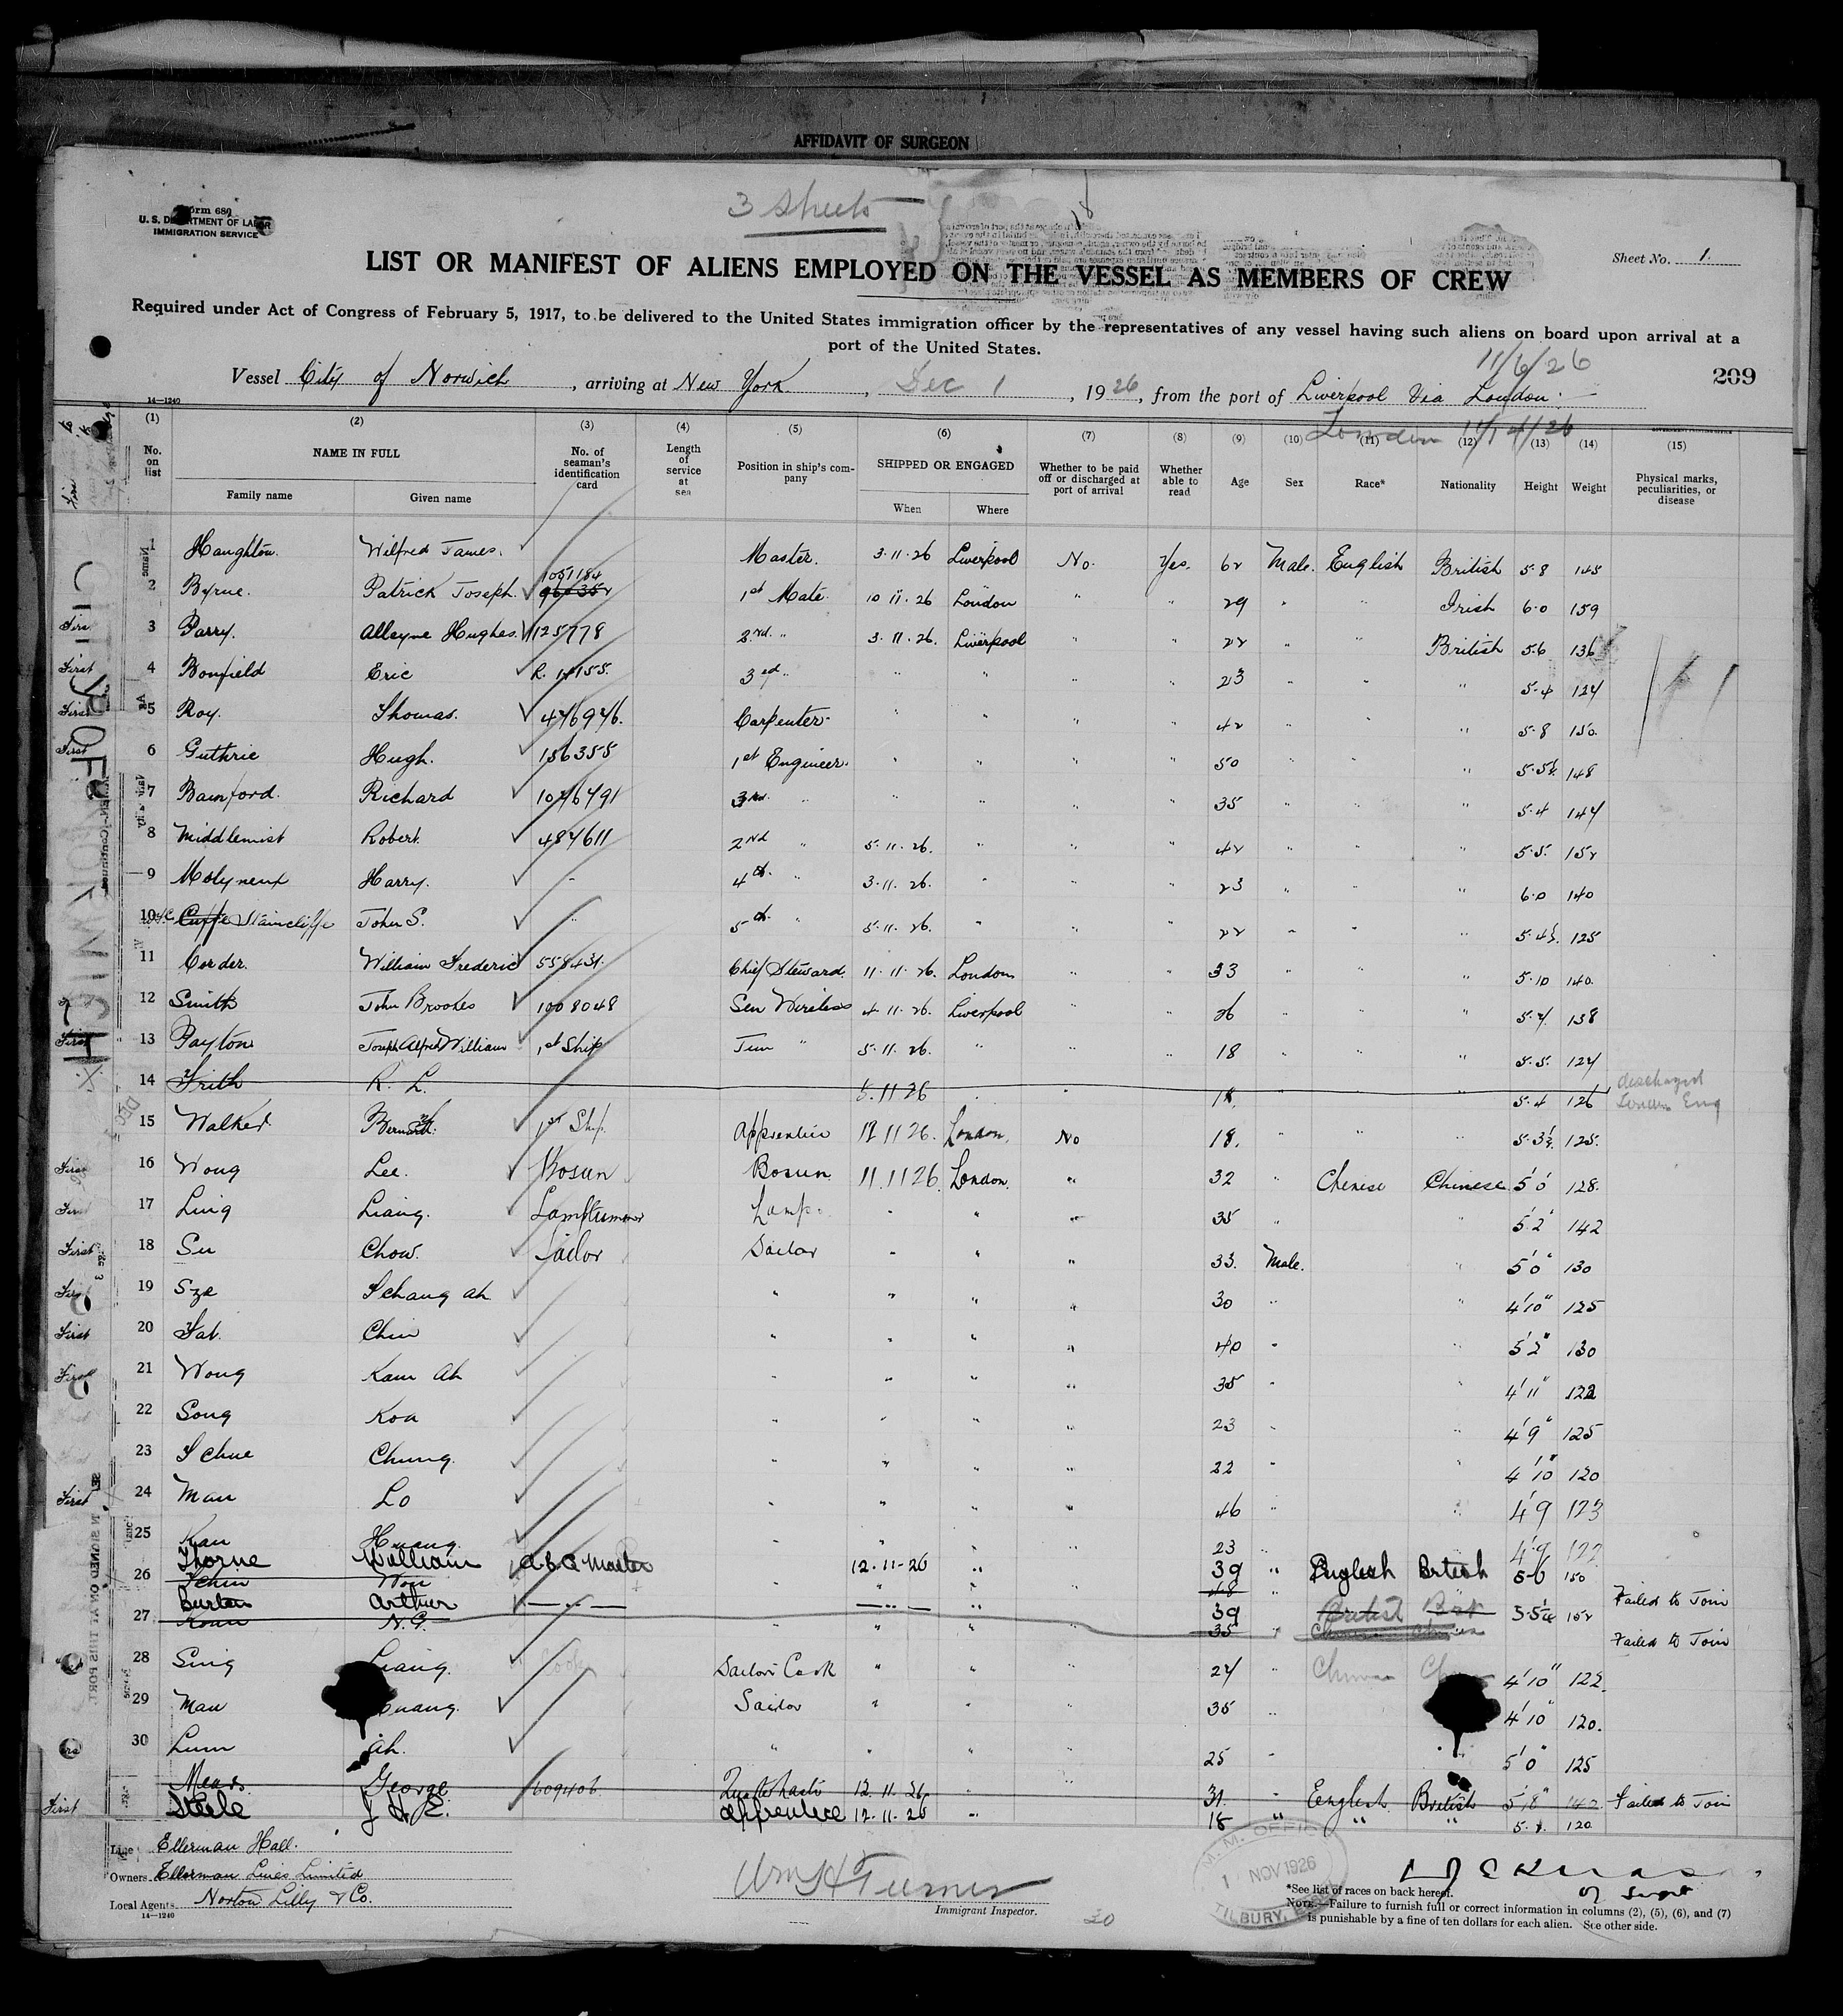 AFFIDAVIT OF SURGEON
3 sheets
Form 680
U. S. DEPARTMENT OF LABOR
IMMIGRATION SERVICE
Sheet No. 1.
LIST OR MANIFEST OF ALIENS EMPLOYED ON THE VESSEL AS MEMBERS OF CREW
Required under Act of Congress of February 5, 1917, to be delivered to the United States immigration officer by the representatives of any vessel having such aliens on board upon arrival at a
port of the United States.
11/6/26
209
Vessel City of Norwich, arriving at New York, Dec 1, 1926, from the port of Liverpool Via London.
14—1240
London 11/14/26
(1) (2) (3) (4) (5) (6) (7) (8) (9) (10) (11) (12) (13) (14) (15)
No. on list NAME IN FULL No. of seaman's identification card Length of service at sea Position in ship's company SHIPPED OR ENGAGED Whether to be paid off or discharged at port of arrival Whether able to read Age Sex Race* Nationality Height Weight Physical marks, peculiarities, or disease
Family name Given name When Where
1 Haughton. Wilfred James. Master. 3.11.26 Liverpool No. Yes. 62 Male. English British 5.8 145
2 Byrne. Patrick Joseph. 1051184 1st Mate 10 11.26 London " " 29 " " Irish 6.0 159
3 Parry. Alleyne Hughes. 125778 2nd. " 3.11.26. Liverpool " " 22 " " British 5.6 136
4 Bonfield Eric R. 14155. 3rd " " " " " 23 " " " 5.4 124
5 Roy. Thomas. 446946. Carpenter. " " " " 42 " " " 5.8 150.
6 Guthrie Hugh. 156355 1st Engineer. " " " " 50 " " " 5.5½. 148
7 Bamford. Richard 1046491 3rd. " " " " " 35 " " " 5.4 144
8 Middlemist Robert. 484611 2nd " 5.11.26. " " " 42 " " " 5.5. 152
9 Molyneux Harry. - 4th. " 3.11.26. " " " 23 " " " 6.0 140
10 Cuffe Staincliffe John S. " 5th. " 5.11.26. " " " 22 " " " 5.4½. 125
11 Corder. William Frederic 558431. Chief Steward. 11.11.26. London " " 33 " " " 5.10 140.
12 Smith John Brookes 1008048 Sen Wireless 4.11.26. Liverpool " " 26 " " " 5.7. 138
First 13 Payton Joseph Alfred William 1st Ship Jun " 5.11.26. " " " 18 " " " 5.5. 124
14 Frith R. L. 5.11 26 " " 18. " 5.4 126 discharged London Eng
15 Walker. 1st Ship. Apprentice 12 11 26. London. No 18. " " " 5.3½. 125.
First 16 Wong Lee. Bosun Bosun 11.11 26. London. " 32 " Chinese Chinese 5'0' 128.
17 Ling Liang. Lamptrimmer Lamp. " " " 35 " " 5'2' 142
First 18 Su Chow. Sailor Sailor " " " 33. Male. " 5'0" 130
19 Sze Schang ah " " " " 30 " " 4'10" 125
First 20 Fat. Chin " " " " 40 " " 5'2" 130
First 21 Wong Kam Ah " " " " 35 " " 4'11" 122
22 Song Koa " " " " 23 " " 4'9" 125
23 Schue Chung. " " " " 22 " " 4'10" 120
First 24 Man Lo " " " " 46 " " 4'9 123
25 Kan Huang. " " " 23 " 4'9 122
Thorne William 12.11-26 " 39 " English British 5-6 150
26 Tchin Won " " 48 " Failed to Join
Burton Arthur —"— —"— " 39 British 5-5½ 152
27 Koun N. G. " " " 35 " Failed to Join
28 Sing Liang. Sailors Cook " " " 24 " 4'10" 122.
29 Man Sailor " " " 35 " 4'10 120.
30 Lum ah. " " " 25 " " 5'0" 125
Mears George 609406 12.11.26. " " 31. " English British 5'8" 140 Failed to Join
First Steele J H E. apprentice 12-11-26 " 18 " " " 5.8. 120
Line Ellerman Hall.
Owners Ellerman Lines Limited
Local Agents Norton Lilly & Co.
14—1240
Wm H Turner
Immigrant Inspector.
20
M. M. OFFICE
1 NOV 1926
TILBURY, ESSEX
*See list of races on back hereof.
NOTE.—Failure to furnish full or correct information in columns (2), (5), (6), and (7)
is punishable by a fine of ten dollars for each alien. See other side.
CITY OF NORWICH